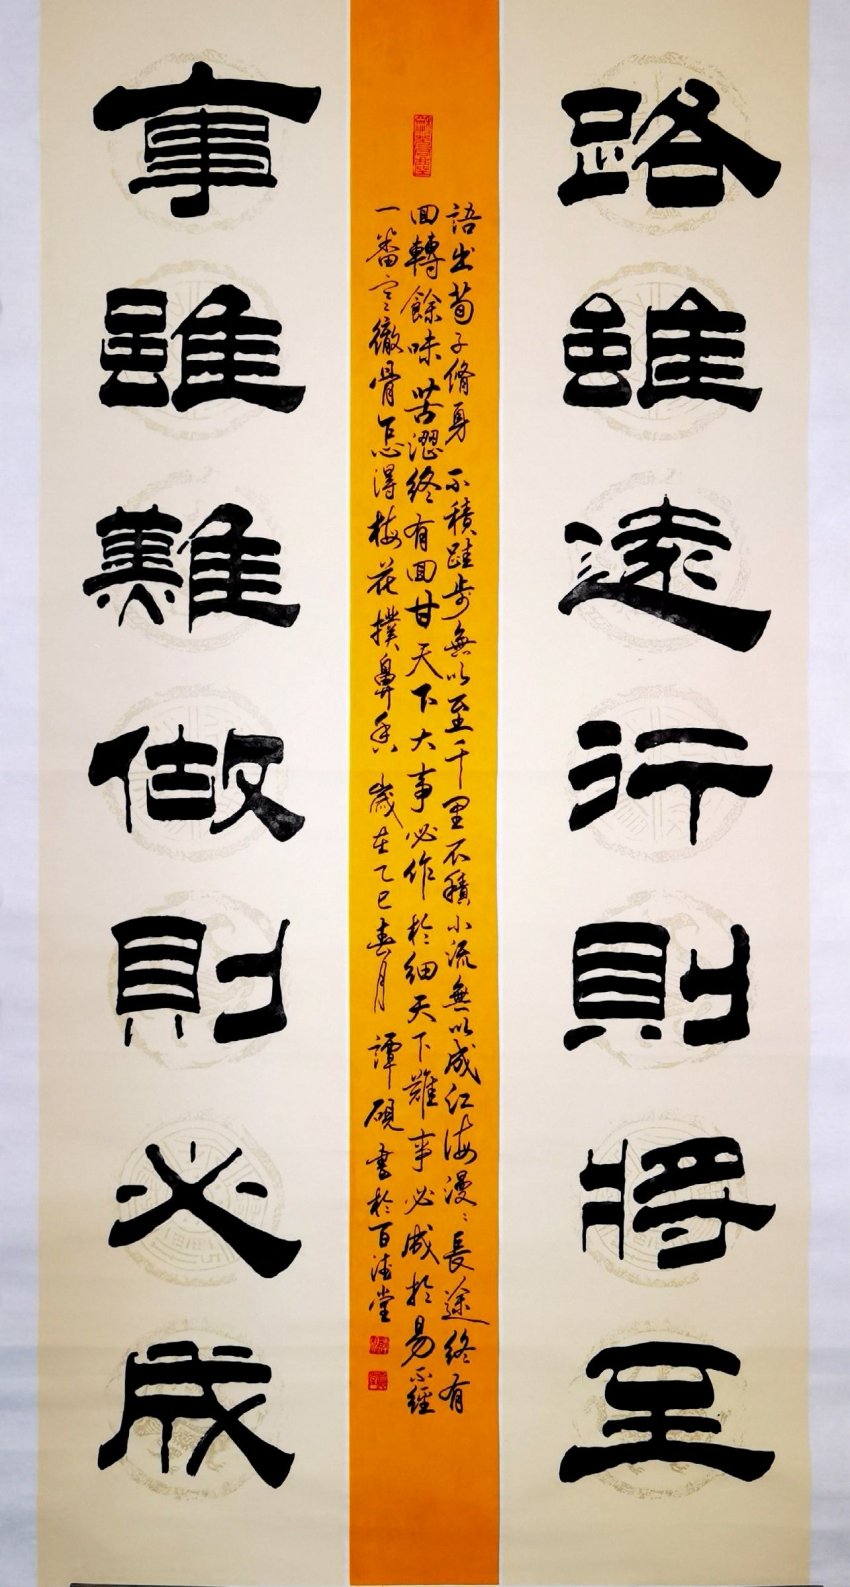 路雖遠行則將至
事雖難做則必成
語出荀子脩身 不積跬步無以至千里不積小流無以成江海漫漫長途終有
回轉餘味苦澀終有回甘天下大事必作於細天下難事必成於易不經
一番寒徹骨怎得梅花撲鼻香 歲在乙巳春月 譚硯書於百法堂